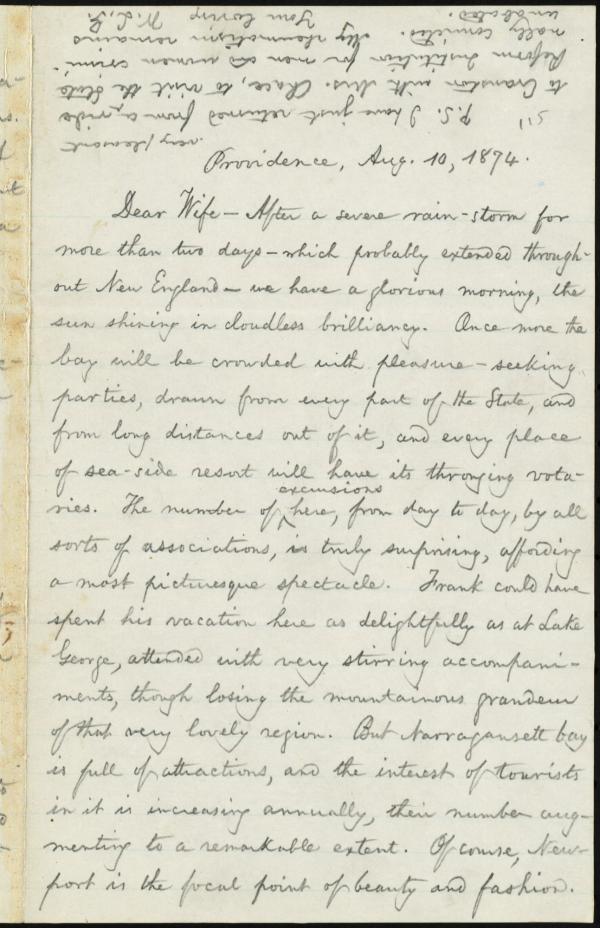 Providence, Aug. 10, 1874.
Dear Wife — After a severe rain-storm for
more than two days — which probably extended through-
out New England — we have a glorious morning, the
sun shining in cloudless brilliancy. Once more the
bay will be crowded with pleasure-seeking
parties, drawn from every part of the State, and
from long distances out of it, and every place
of sea-side resort will have its thronging vota-
ries. The number of excursions here, from day to day, by all
sorts of associations, is truly surprising, affording
a most picturesque spectacle. Frank could have
spent his vacation here as delightfully as at Lake
George, attended with very stirring accompani-
ments, though losing the mountainous grandeur
of that very lovely region. But Narragansett bay
is full of attractions, and the interest of tourists
in it is increasing annually, their number aug-
menting to a remarkable extent. Of course, New-
port is the focal point of beauty and fashion.
very pleasant
P.S. I have just returned from a ride
to Cranston with Mrs. Chace, to visit the State
Reform Institution for men and women crimi-
nally convicted. My rheumatism remains
unabated. Your loving W. L. G.